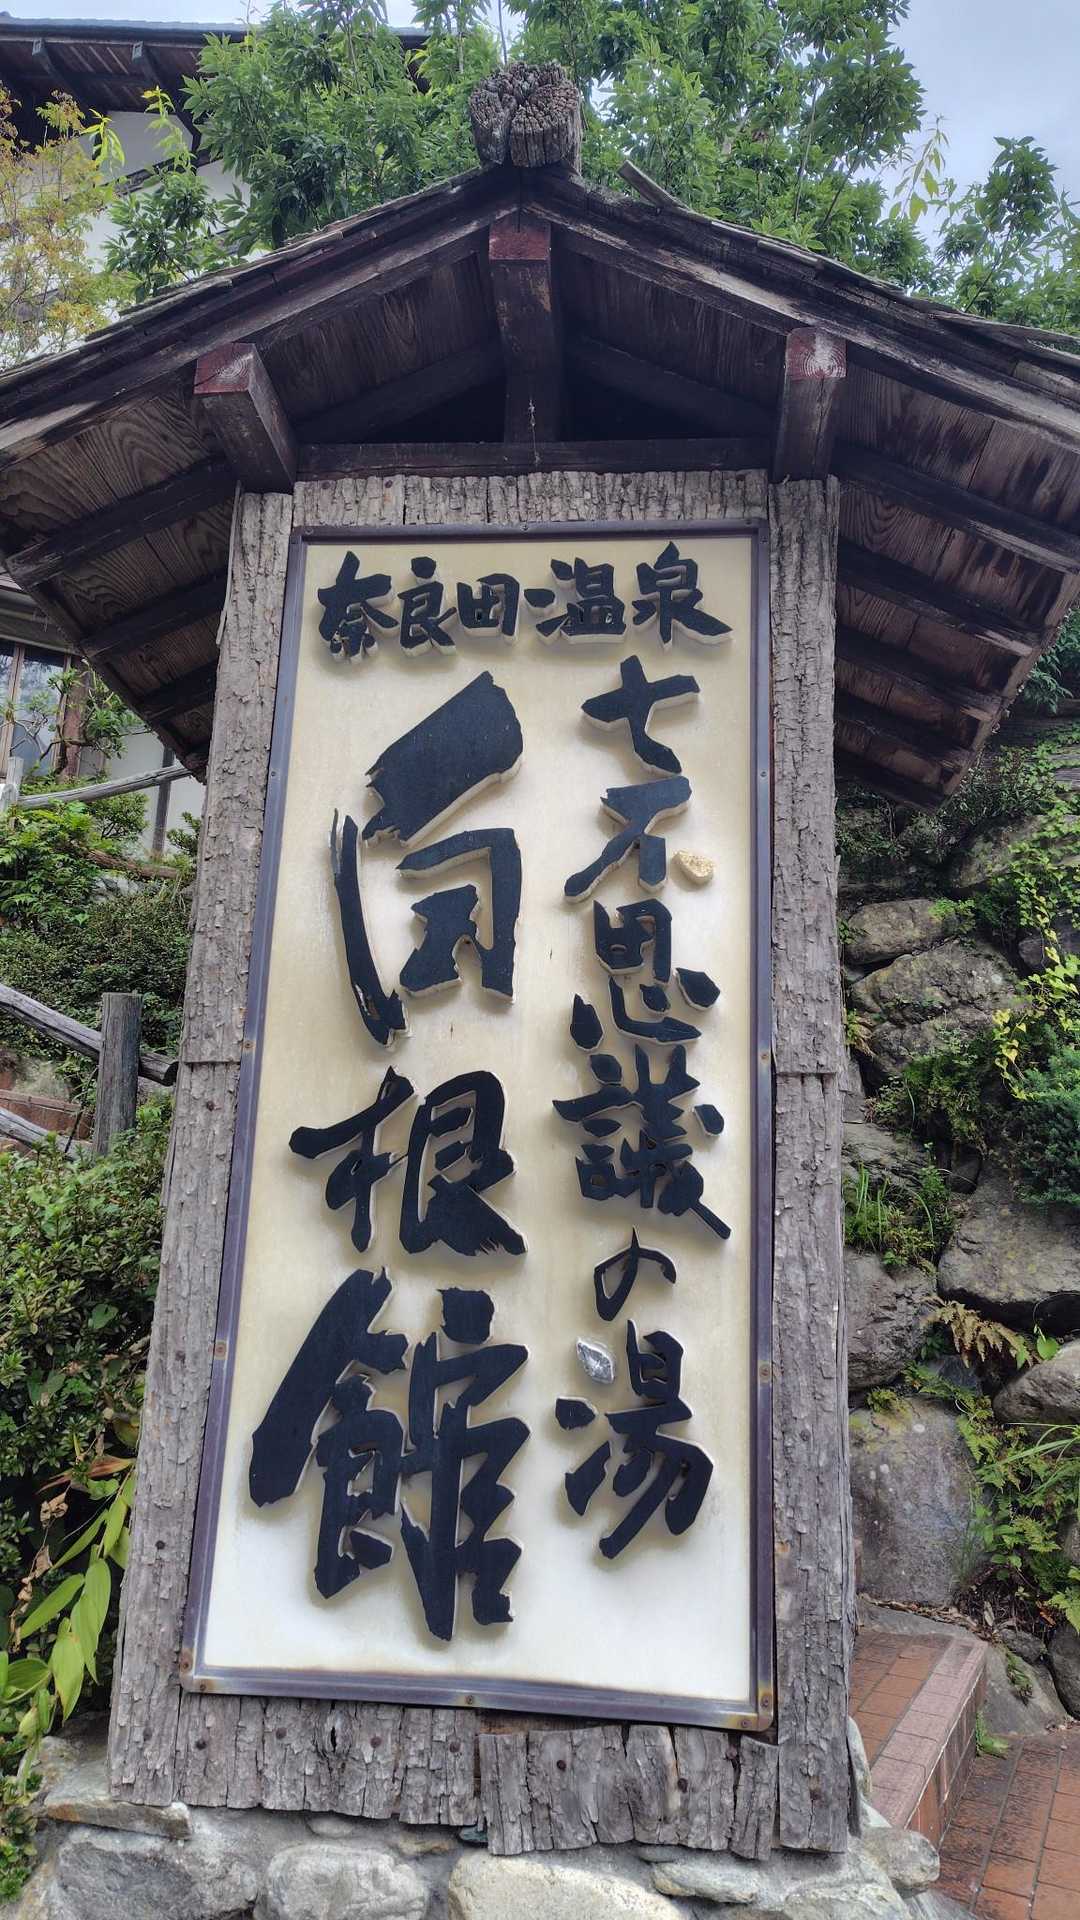 奈良田温泉
七不思議の湯
白根館